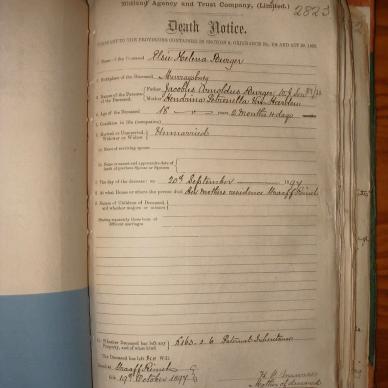 Midland Agency and Trust Company, (Limited.) 2823
Death Notice.
PURSUANT TO THE PROVISIONS CONTAINED IN SECTION 9, ORDINANCE No. 104 AND ACT 20, 1895.
1. Name of the Deceased Elsie Helena Burger
2. Birthplace of the Deceased Murraysburg
3. Names of the Parents of the Deceased. Father Jacobus Arnoldus Burger
Mother Hendrina Petronella
4. Age of the Deceased 18 2 months 4 days
5. Condition in life (occupation)
6. Married or Unmarried, Widower or Widow Unmarried
Name of surviving spouse
Name or names and approximate date of death of previous Spouse or Spouses
7. The day of the decease: on 20th September 1897
8. At what House or where the person died Her mothers residence Graaff Reinet
9. Names of Children of Deceased, and whether majors or minors
Stating separately those born of different marriages
10. Whether Deceased has left any Property, and of what kind Paternal Inheritance
The Deceased has left Will
Dated at Graaff Reinet
this 19th October 1897
Mother of deceased